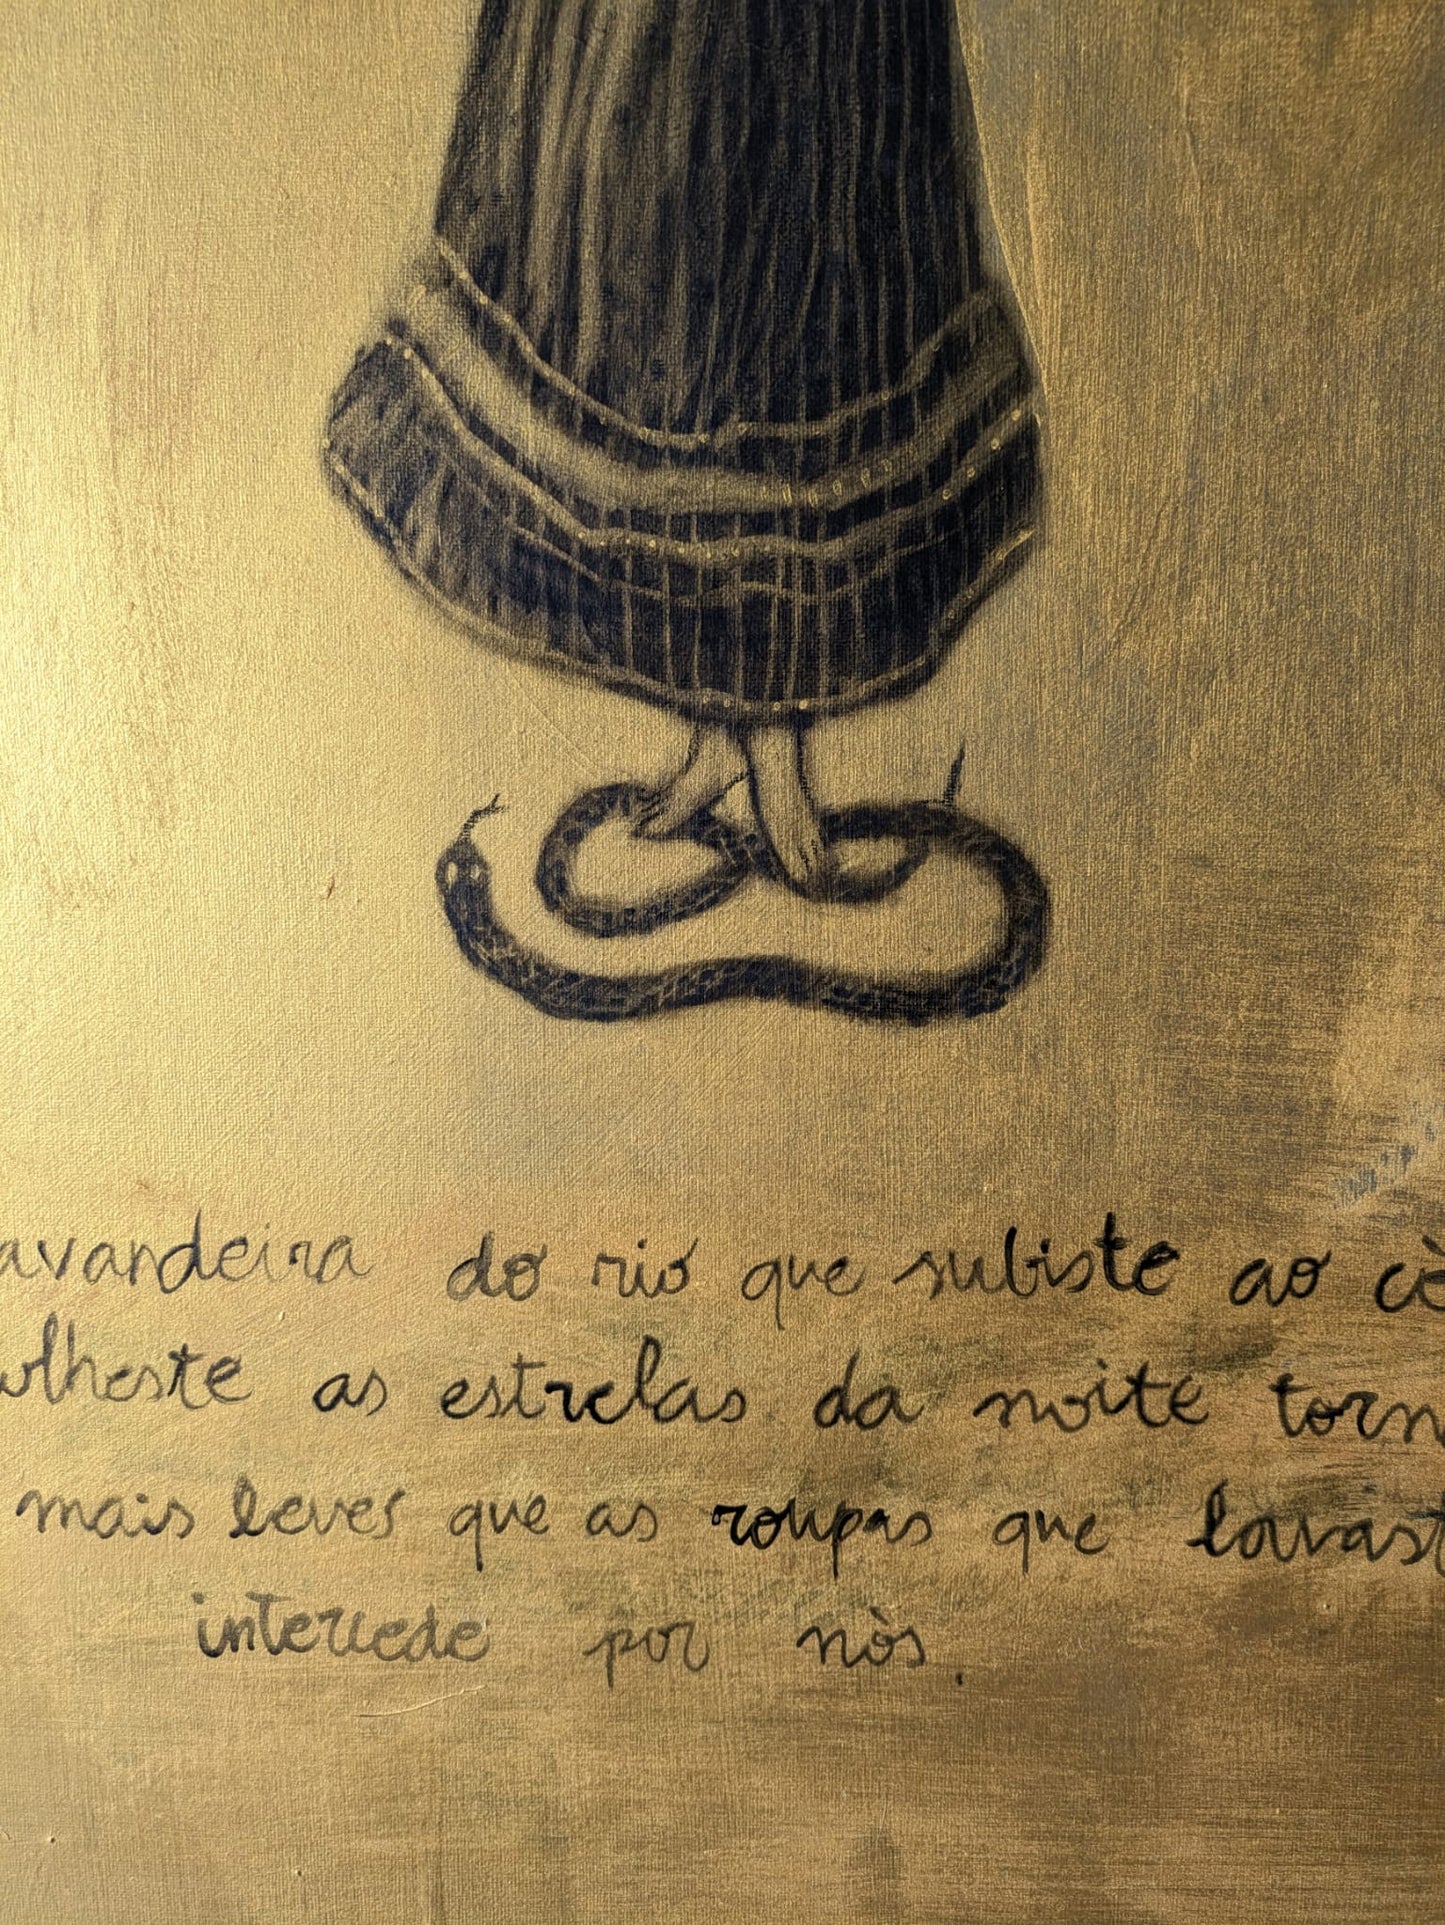 avandeira do rio que subiste ao cè
olheste as estrelas da noite torn
mais leves que as roupas que lavast
intercede por nòs.